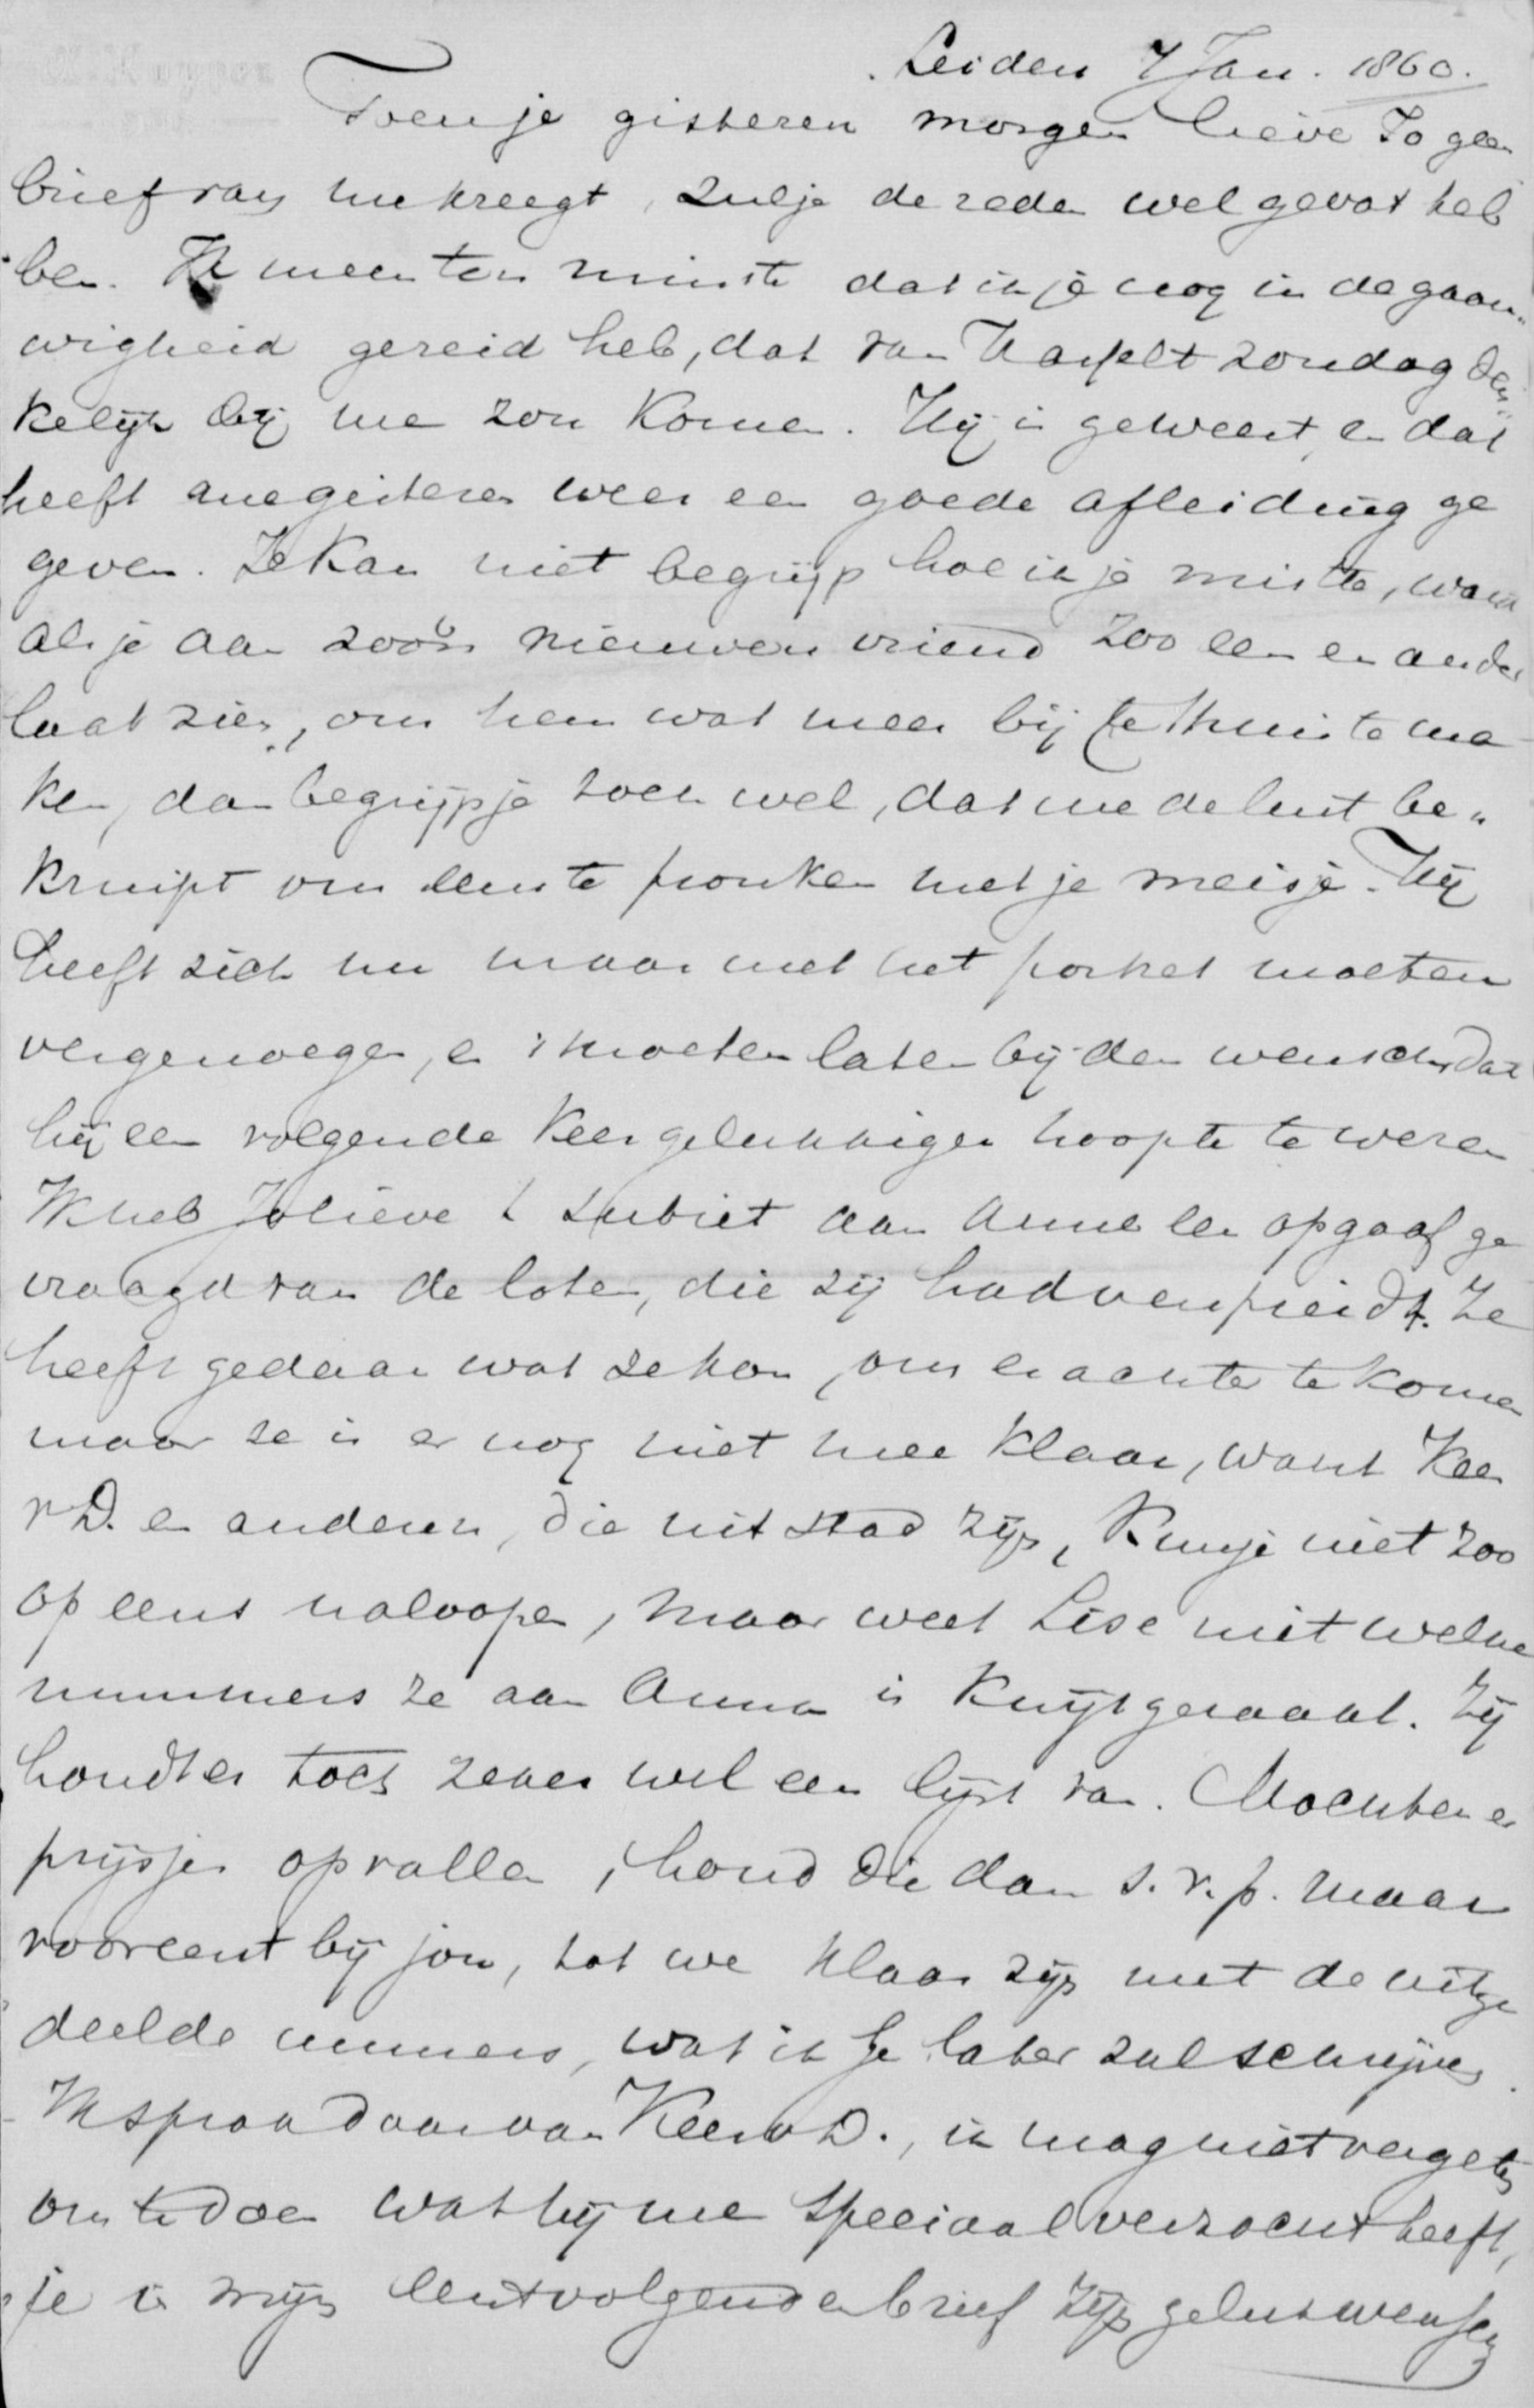 Leiden 7 Jan. 1860.
Toen je gisteren morgen lieve Jo geen
brief van me kreegt, zul je de reden wel gevat heb
ben. Ik meen ten minste dat ik je nog in de gaau„
wigheid gezeid heb, dat van Hasselt zondag den„
kelijk bij me zou komen. Hij is geweest, en dat
heeft me gisteren weer een goede afleiding ge
geven. Je kan niet begrijp hoe ik je miste, want
als je aan zoo'n nieuwen vriend zoo een en ander
laat zien, om hem wat meer bij je thuis te ma
ken, dan begrijp je toch wel, dat me de lust be„
kruipt om eens te pronken met je meisje. Hij
heeft zich nu maar met het portret moeten
vergenoegen, en 't moeten laten bij den wensch, dat
hij een volgende keer gelukkiger hoopte te wezen
Ik heb Jo lieve 't subiet aan Anna een opgaaf ge
vraagd van de loten, die zij had verspreidt. Ze
heeft gedaan wat ze kon, om er achter te komen
maar ze is er nog niet mee klaar, want Keer
v D. en anderen, die uit stad zijn, kun je niet zoo
op eens naloopen, maar weet Lise niet welke
nummers ze aan Anna is kwijtgeraakt. Zij
houdt er toch zeker wel een lijst van. Mochten er
prijsjes op vallen, houd die dan s.v.p. maar
vooreerst bij jou, tot we klaar zijn met de uitge
deelde nummers, wat ik je later zal schrijven.
Ik sprak daar van Keer v D., ik mag niet vergeten
om te doen wat hij me speciaal verzocht heeft,
je in mijn eerstvolgende brief zijn gelukwensch